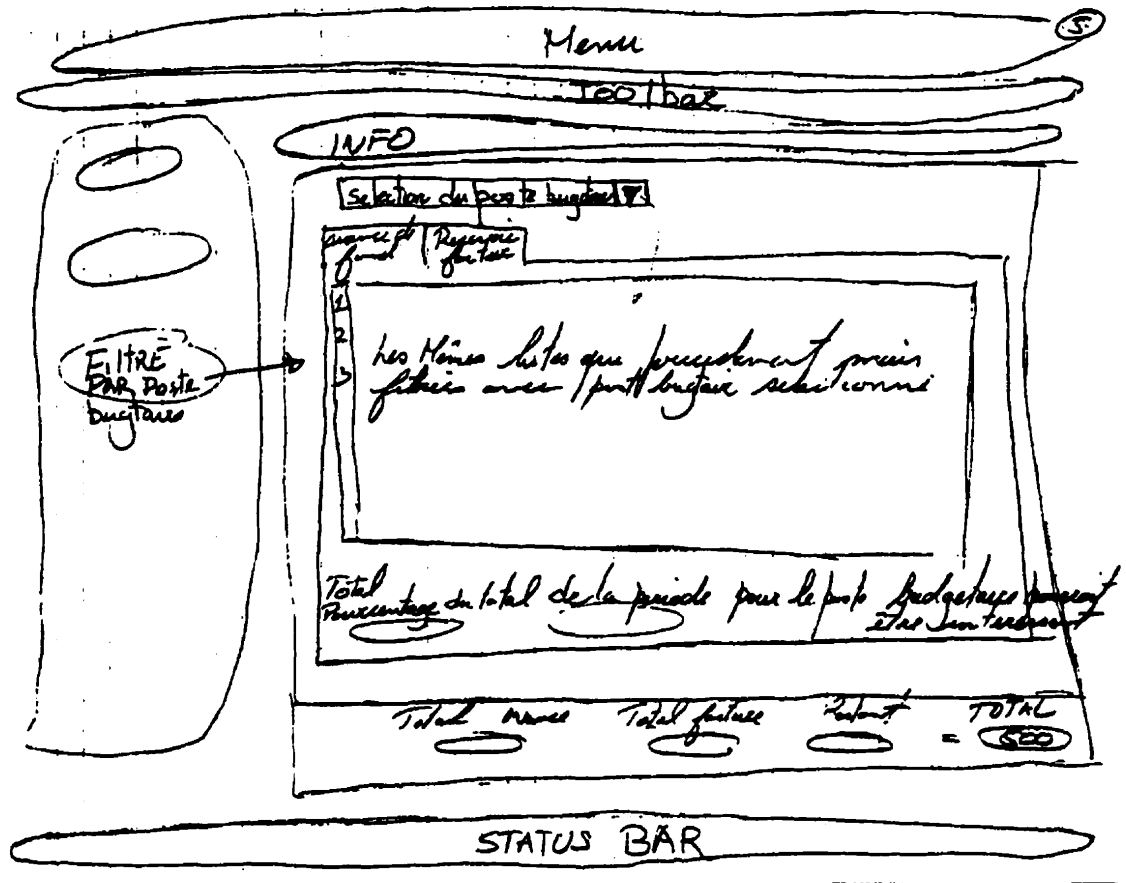 Menu
5
Toolbar
INFO
Selection du poste
avance de
fond
Reçernie
facture
1
2
3
FiltRE
PAR Poste
bugtaires
Les Mêmes listes que precedement mais
filtrées avec
Total
Pourcentage du total de la periode pour le poste Budgetaire
être interessant
Total avance
Total facture
TOTAL
= 500
STATUS BAR